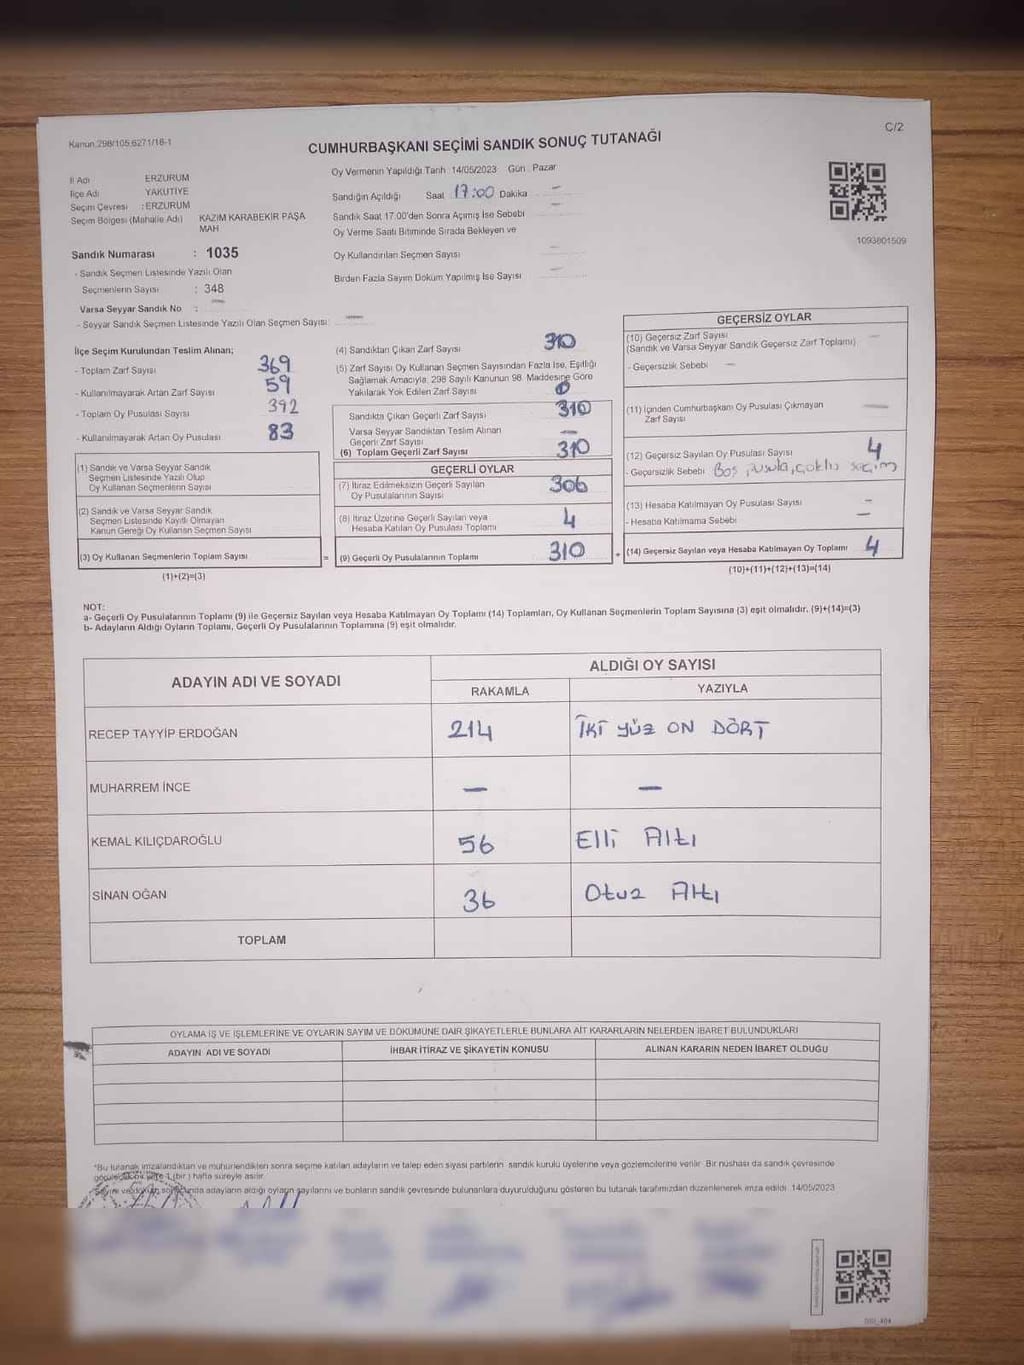 C/2
Kanun.298/105,6271/18-1
CUMHURBAŞKANI SEÇİMİ SANDIK SONUÇ TUTANAĞI
İl Adı ERZURUM
İlçe Adı YAKUTİYE
Seçim Çevresi : ERZURUM
Seçim Bölgesi (Mahalle Adı) KAZIM KARABEKİR PAŞA MAH
Sandık Numarası : 1035
- Sandık Seçmen Listesinde Yazılı Olan
Seçmenlerin Sayısı : 348
Varsa Seyyar Sandık No : —
- Seyyar Sandık Seçmen Listesinde Yazılı Olan Seçmen Sayısı: —
Oy Vermenin Yapıldığı Tarih : 14/05/2023 Gün : Pazar
Sandığın Açıldığı Saat 17:00 Dakika —
Sandık Saat 17.00'den Sonra Açımış İse Sebebi —
Oy Verme Saati Bitiminde Sırada Bekleyen ve
Oy Kullandırılan Seçmen Sayısı —
Birden Fazla Sayım Döküm Yapılmış İse Sayısı —
1093801509
İlçe Seçim Kurulundan Teslim Alınan;
- Toplam Zarf Sayısı 369
- Kullanılmayarak Artan Zarf Sayısı 59
- Toplam Oy Pusulası Sayısı 392
- Kullanılmayarak Artan Oy Pusulası 83
(1) Sandık ve Varsa Seyyar Sandık
Seçmen Listesinde Yazılı Olup
Oy Kullanan Seçmenlerin Sayısı
(2) Sandık ve Varsa Seyyar Sandık
Seçmen Listesinde Kayıtlı Olmayan
Kanun Gereği Oy Kullanan Seçmen Sayısı
(3) Oy Kullanan Seçmenlerin Toplam Sayısı =
(1)+(2)=(3)
(4) Sandıktan Çıkan Zarf Sayısı 310
(5) Zarf Sayısı Oy Kullanan Seçmen Sayısından Fazla İse, Eşitliği
Sağlamak Amacıyla, 298 Sayılı Kanunun 98. Maddesine Göre
Yakılarak Yok Edilen Zarf Sayısı 0
Sandıkta Çıkan Geçerli Zarf Sayısı 310
Varsa Seyyar Sandıktan Teslim Alınan
Geçerli Zarf Sayısı —
(6) Toplam Geçerli Zarf Sayısı 310
GEÇERLİ OYLAR
(7) İtiraz Edilmeksizin Geçerli Sayılan
Oy Pusulalarının Sayısı 306
(8) İtiraz Üzerine Geçerli Sayılan veya
Hesaba Katılan Oy Pusulası Toplamı 4
(9) Geçerli Oy Pusulalarının Toplamı 310 +
GEÇERSİZ OYLAR
(10) Geçersiz Zarf Sayısı
(Sandık ve Varsa Seyyar Sandık Geçersiz Zarf Toplamı) —
- Geçersizlik Sebebi —
(11) İçinden Cumhurbaşkanı Oy Pusulası Çıkmayan
Zarf Sayısı —
(12) Geçersiz Sayılan Oy Pusulası Sayısı 4
- Geçersizlik Sebebi Boş pusula, çoklu seçim
(13) Hesaba Katılmayan Oy Pusulası Sayısı —
- Hesaba Katılmama Sebebi —
(14) Geçersiz Sayılan veya Hesaba Katılmayan Oy Toplamı 4
(10)+(11)+(12)+(13)=(14)
NOT:
a- Geçerli Oy Pusulalarının Toplamı (9) ile Geçersiz Sayılan veya Hesaba Katılmayan Oy Toplamı (14) Toplamları, Oy Kullanan Seçmenlerin Toplam Sayısına (3) eşit olmalıdır. (9)+(14)=(3)
b- Adayların Aldığı Oyların Toplamı, Geçerli Oy Pusulalarının Toplamına (9) eşit olmalıdır.
ADAYIN ADI VE SOYADI ALDIĞI OY SAYISI
RAKAMLA YAZIYLA
RECEP TAYYİP ERDOĞAN 214 İKİ YÜZ ON DÖRT
MUHARREM İNCE — —
KEMAL KILIÇDAROĞLU 56 Elli Altı
SİNAN OĞAN 36 Otuz Altı
TOPLAM
OYLAMA İŞ VE İŞLEMLERİNE VE OYLARIN SAYIM VE DÖKÜMÜNE DAİR ŞİKAYETLERLE BUNLARA AİT KARARLARIN NELERDEN İBARET BULUNDUKLARI
ADAYIN ADI VE SOYADI İHBAR İTİRAZ VE ŞİKAYETİN KONUSU ALINAN KARARIN NEDEN İBARET OLDUĞU
*Bu tutanak imzalandıktan ve mühürlendikten sonra seçime katılan adayların ve talep eden siyasi partilerin sandık kurulu üyelerine veya gözlemcilerine verilir. Bir nüshası da sandık çevresinde
(bir) hafta süreyle asılır.
adayların aldığı oyların sayılarını ve bunların sandık çevresinde bulunanlara duyurulduğunu gösteren bu tutanak tarafımızdan düzenlenerek imza edildi. 14/05/2023